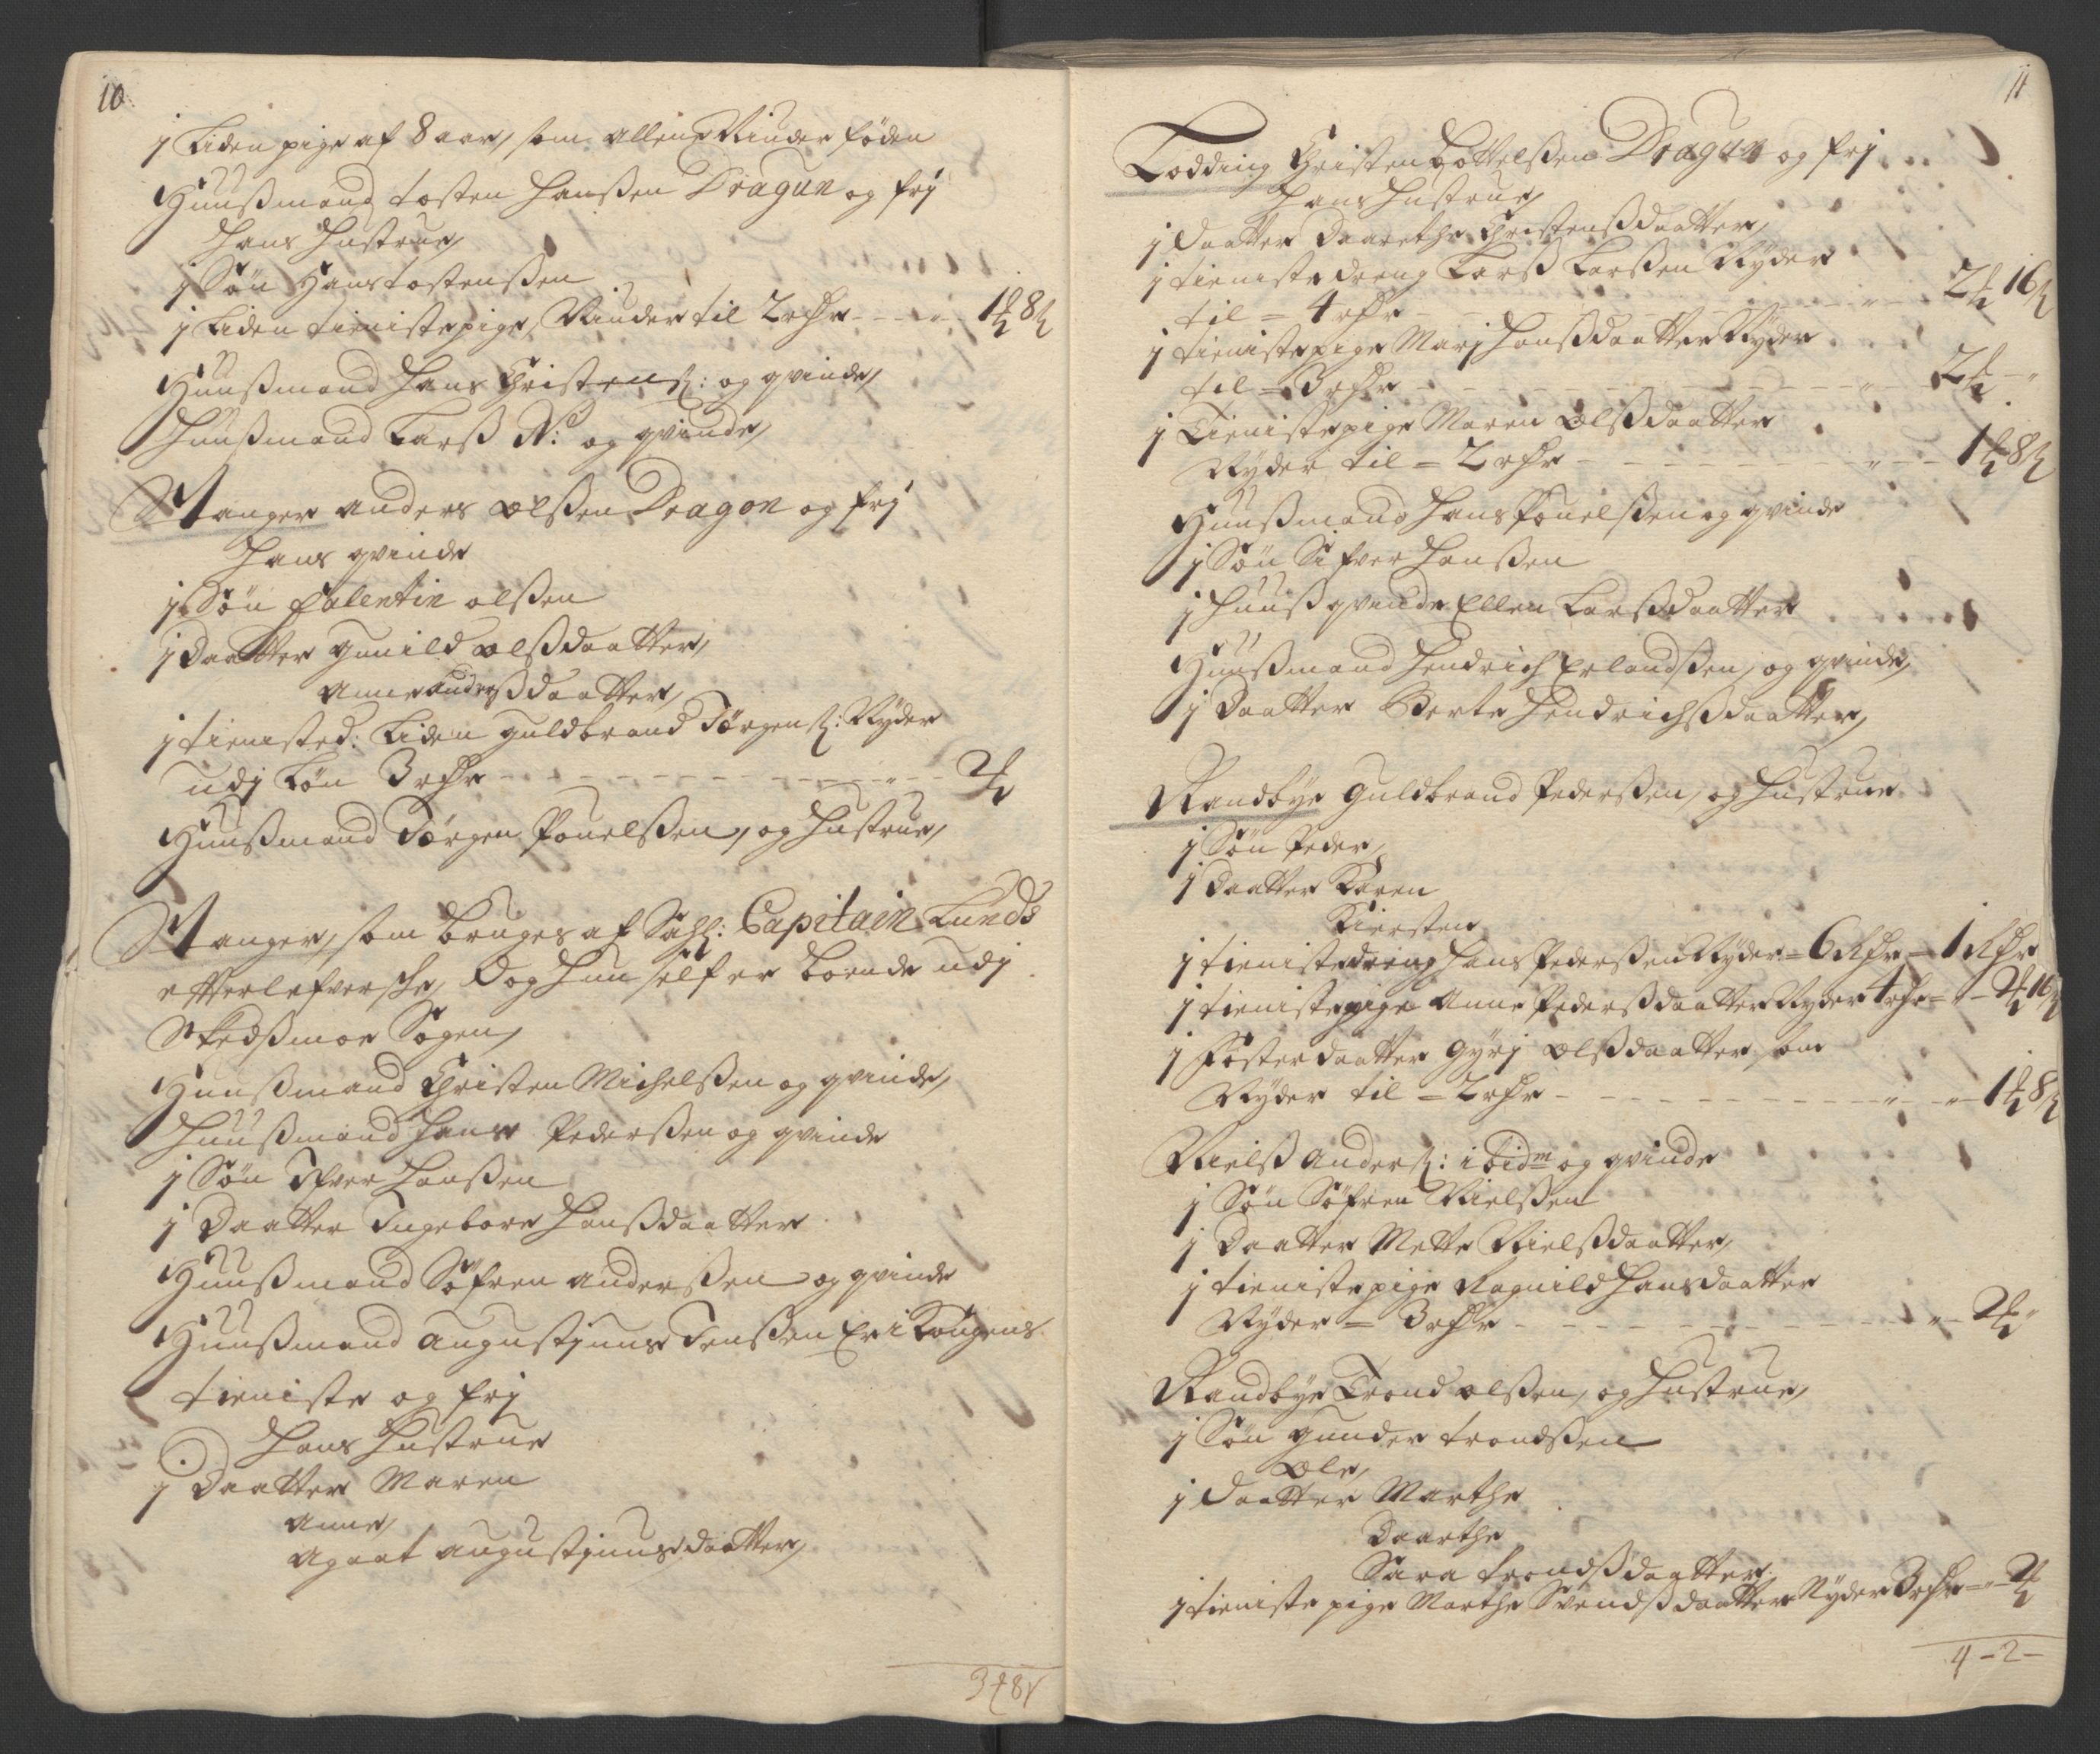 10
1 Liden pige af 8 aar, som allene Niuder føden
Huußmand tosten Hanßen Dragun og frj
Hans Hustrue,
1 Søn Hans tostenßen
1 Liden tienistepige, Niuder til 2 rdr - - - 1 8
Huußmand Hans Christenß: og qvinde,
Huußmand Larß N: og qvinde,
Stanger anders olßen Dragon og frj
Hans qvinde
1 Søn Falentin olßen
1 Daatter gunild olßdaatter,
anne anderßdaatter,
1 tienisted: Liden guldbrand Jørgenß: Nyder
udj Løn 3 rdr - - - 2
Huußmand Jørgen Pouelßen, og Hustrue,
Stanger, som bruges af Sahl: Capitain Lunds
efterlefversche, Dog Hun self er boende udj
Skedßmoe Sogen,
Huußmand Christen Michelßen og qvinde,
Huußmand Hans Pederßen og qvinde
1 Søn Ifver Hanßen
1 Daatter Ingebore Hanßdaatter
Huußmand Søfren anderßen og qvinde
Huußmand augustinus Jenßen Er i Kongens
tieniste og frj
Hans Hustrue
1 Daatter Maren
anne,
agaat augustinusdaatter,
11
Lodding Christen Bottelßen Dragun og frj
Hans Hustrue,
1 Daatter Daarethe Christenßdaatter,
1 tieniste dreng Larß Larßen Nyder
til = 4 rdr - - - 2 16
1 tienistepige Marj Hanßdaatter Nyder
til = 3 rdr - - - 2
1 Tienistepige Maren olßdaatter
Nyder til = 2 rdr - - - 1 8
Huußmand Hans Pouelßen og qvinde
1 Søn Sifver Hanßen
1 Huußqvinde Ellen Larßdaatter
Huußmand Hendrich Erlandßen, og qvinde,
1 Daatter Berte Hendrichßdaatter,
Randbye guldbrand Pederßen, og Hustrue
1 Søn Peder,
1 Daatter Karen
Kiersten
1 tienistedreng Hans Pederßen Nyder = 6 Rdr = 1 Rdr
1 tienistepige anne Pederßdaatter Nyder 4 rdr = 2 16
1 Fosterdaatter gyrj olßdaatter, som
Nyder til = 2 rdr - - - 1 8
Nielß anderß: ibidm og qvinde
1 Søn Søfren Nielßen
1 Daatter Mette Nielßdaatter,
1 tienistepige Ragnild Hansdaatter
Nyder = 3 rdr - - - 2
Randbye Trond olßen, og Hustrue,
1 Søn gunder trondßen
ole,
1 Daatter Marthe
Daarthe
Sara trondßdaatter
1 tieniste pige Marthe Svendßdaatter Nyder 3 rdr = 2
4 - 2 -